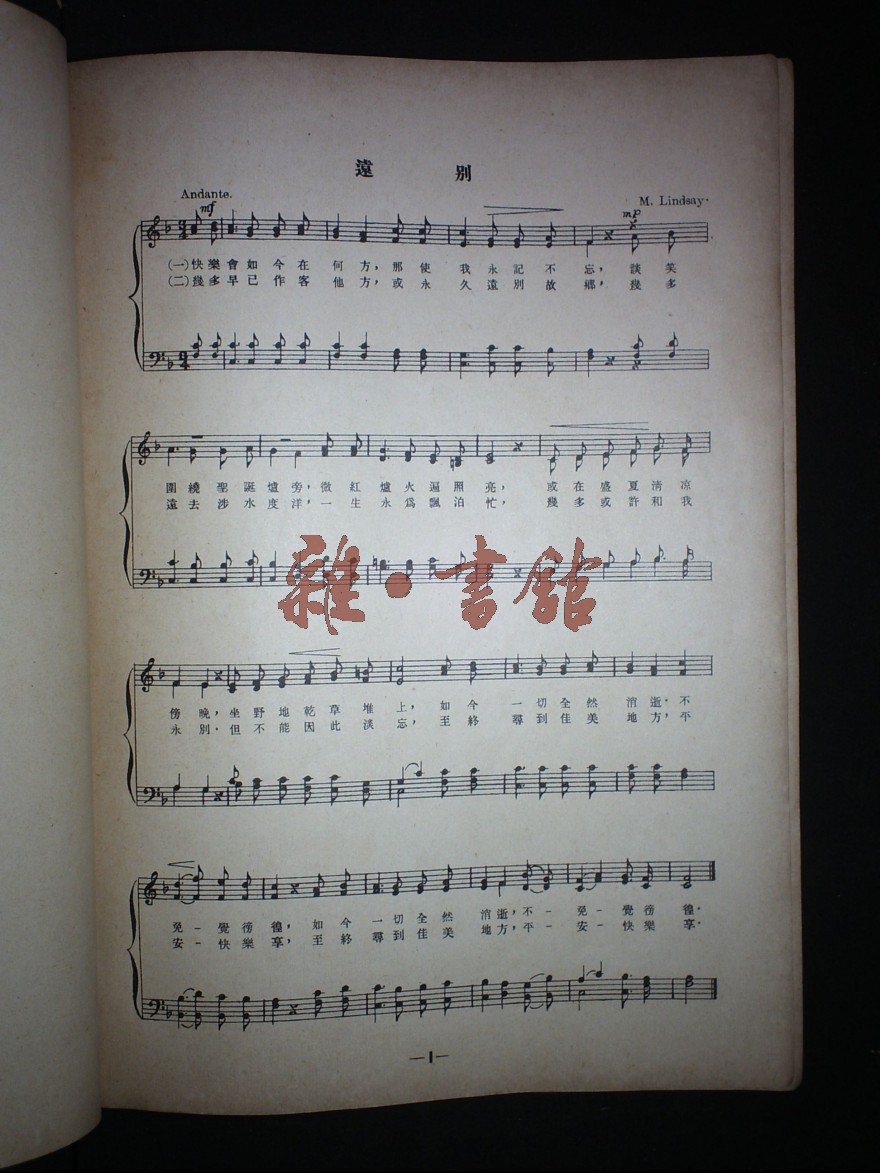 遠別
Andante.
M. Lindsay.
mf
mp
(一)快樂會如今在何方,那使我永記不忘,談笑
(二)幾多早已作客他方,或永久遠別故鄉,幾多
圍繞聖誕爐旁,微紅爐火遍照亮,或在盛夏清涼
遠去涉水度洋,一生永爲飄泊忙,幾多或許和我
雜·書館
傍晚,坐野地乾草堆上,如今一切全然消逝,不
永別,但不能因此淡忘,至終尋到佳美地方,平
免-覺徬徨,如今一切全然消逝,不-免-覺徬徨.
安-快樂享,至終尋到佳美地方,平-安-快樂享.
—1—